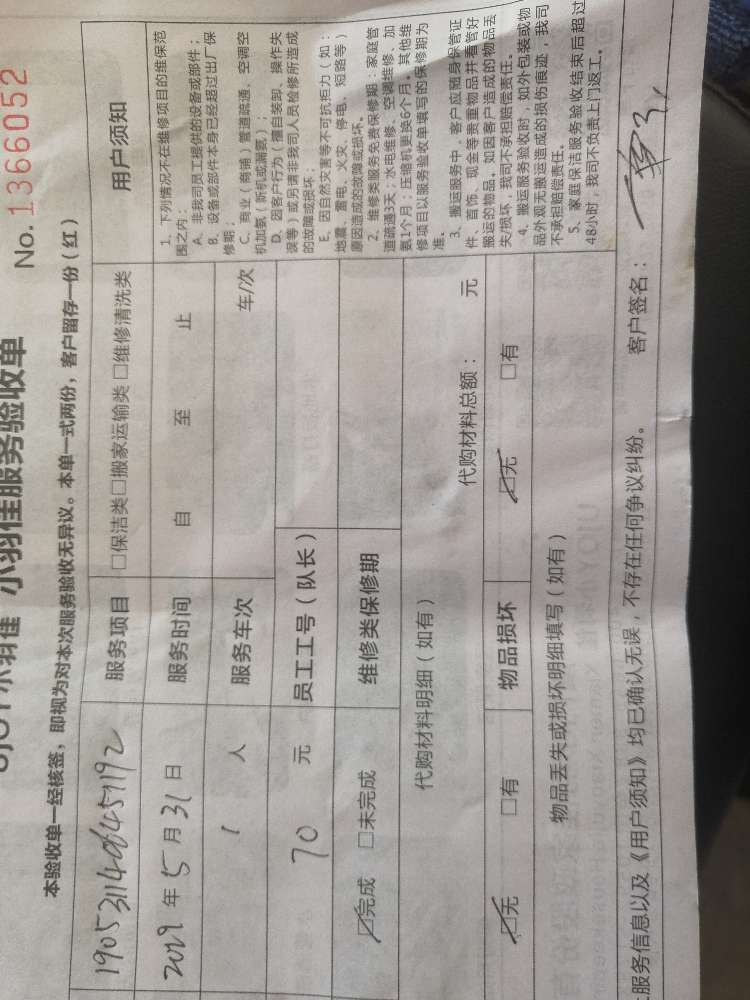 小羽佳 小羽佳服务验收单
No. 1366052
本验收单一经核签，即视为对本次服务验收无异议。本单一式两份，客户留存一份（红）
服务项目 □保洁类□搬家运输类□维修清洗类
2019年5月31日 服务时间 自 至 止
1 人 服务车次 车/次
70 元 员工工号（队长）
☑完成 □未完成 维修类保修期
代购材料明细（如有） 代购材料总额： 元
☑无 □有 物品损坏 ☑无 □有
物品丢失或损坏明细填写（如有）
用户须知
1、下列情况不在维修项目的维保范
围之内：
A、非我司员工提供的设备或部件；
B、设备或部件本身已经超过出厂保
修期；
C、商业（商铺）管道疏通、空调空
机加氨（新机或漏氨）；
D、因客户行为（擅自装卸、操作失
误等）或另请非我司人员检修所造成
的故障或损坏；
E、因自然灾害等不可抗拒力（如：
地震、蓄电、火灾、停电、短路等）
原因造成的故障或损坏。
2、维修类服务免费保修期：家庭管
道疏通3天；水电维修、空调维修、加
氨1个月；压缩机更换6个月。其他维
修项目以服务验收单填写的保修期为
准。
3、搬运服务中，客户应随身保管证
件、首饰、现金等贵重物品并看管好
搬运的物品。如因客户造成的物品丢
失/损坏，我司不承担赔偿责任。
4、搬运服务验收时，如外包装或物
品外观无搬运造成的损伤痕迹，我司
不承担赔偿责任。
5、家庭保洁服务验收结束后超过
48小时，我司不负责上门返工。
服务信息以及《用户须知》均已确认无误，不存在任何争议纠纷。 客户签名：